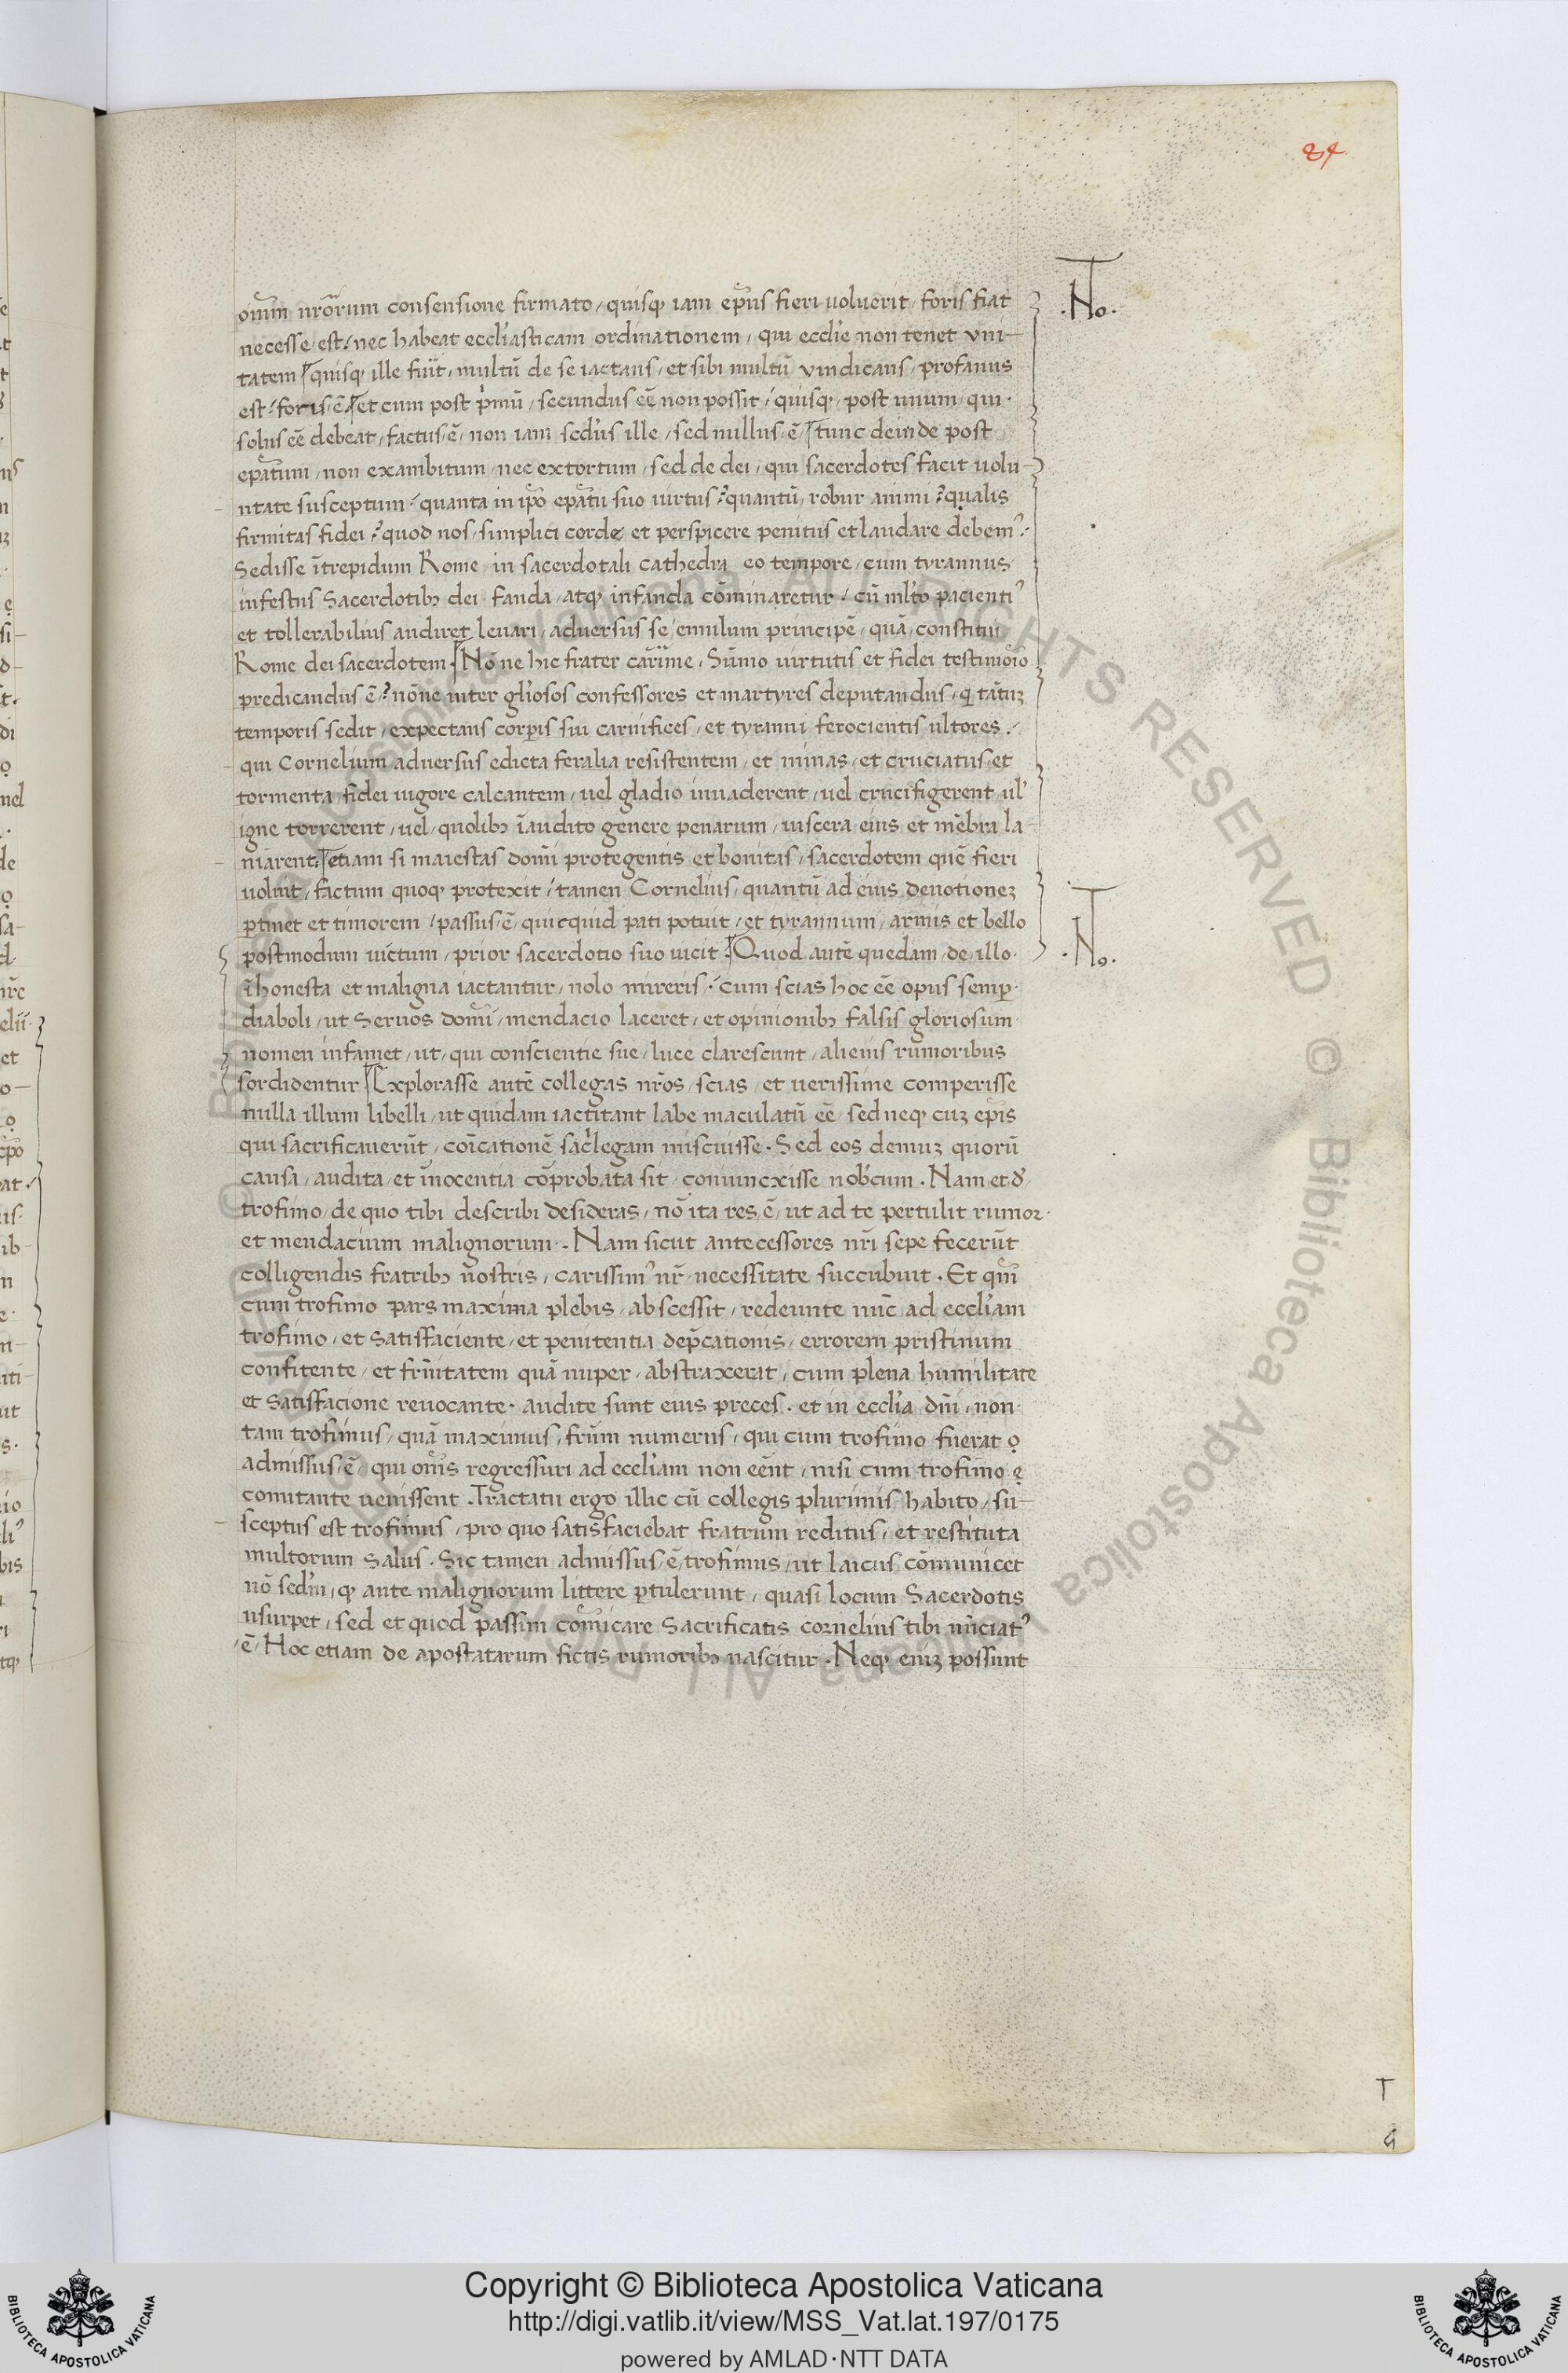 84
No.
oiũm nr̃orum consensione firmato / quisq; iam ep̃us fieri uoluerit / foris fiat
necesse est / nec habeat eccl'iasticam ordinationem / qui eccl'ie non tenet vni-
tatem quisq; ille fuit / multũ de se iactans / et sibi multũ vindicans / profanus
est / foris ẽ et cum post p'mũ / secundus eẽ non possit / quisq; post unum / qui
solus eẽ debeat / factus ẽ / non iam sed'us ille / sed nullus ẽ / tunc deinde post
ep̃atum / non exambitum / nec extortum / sed de dei / qui sacerdotes facit uolu-
ntate susceptum / quanta in ip̃o ep̃atu suo uirtus ? quantũ robur animi ? qualis
firmitas fidei ? quod nos / simplici corde et perspicere penitus et laudare debem9
Sedisse ĩtrepidum Rome in sacerdotali cathedra eo tempore / cum tyrannus
infestus Sacerdotib; dei fanda / atq; infanda cõminaretur / cũ ml'to pacienti9
et tollerabilius audiret leuari / aduersus se emulum principẽ / quã constitui
Rome dei sacerdotem. Nõ ne hic frater carim̃e / Sũmo uirtutis et fidei testimoĩo
predicandus ẽ ? nõne inter gl'iosos confessores et martyres deputandus / q tãtuz
temporis sedit / expectans corp̃is sui carnifices / et tyranni ferocientis ultores /
qui Cornelium aduersus edicta feralia resistentem / et minas / et cruciatus / et
tormenta / fidei uigore calcantem / uel gladio inuaderent / uel crucifigerent / ul'
igne torrerent / uel / quolib; ĩaudito genere penarum / uiscera eius et mẽbra la-
niarent / etiam si maiestas domĩ protegentis et bonitas / sacerdotem quẽ fieri
uoluit / factum quoq; protexit / tamen Cornelius / quantũ ad eius deuotionez
p̱tinet et timorem / passus ẽ / quicquid pati potuit / et tyrannum / armis et bello
postmodum uictum / prior sacerdotio suo uicit. Quod autẽ quedam / de illo
No.
ĩhonesta et maligna iactantur / nolo mireris / cum scias hoc eẽ opus semp̱
diaboli / ut Seruos domĩ / mendacio laceret / et opinionib; falsis gloriosum
nomen infamet / ut / qui conscientie sue / luce clarescunt / alienis rumoribus
sordidentur Explorasse autẽ collegas nr̃os / scias / et uerissime comperisse
nulla illum libelli / ut quidam iactitant labe maculatũ eẽ / sed neq; cuz ep̃is
qui sacrificauerũt / coĩcationẽ sac'legam miscuisse. Sed eos demuz quorũ
causa / audita / et ĩnocentia cõprobata sit / coniunexisse nob'cum. Nam et d'
trofimo / de quo tibi describi desideras / nõ ita res ẽ / ut ad te pertulit rumor
et mendacium malignorum. Nam sicut antecessores nr̃i sepe fecerũt
colligendis fratrib; ñostris / carissim9 nr̃ necessitate succubuit. Et qm̃
cum trofimo pars maxima plebis / abscessit / redeunte nũc ad eccl'iam
trofimo / et satisfaciente / et penitentia dep̃cationis / errorem pristinum
confitente / et frñitatem quã nuper / abstraxerat / cum plena humilitate
et satisfacione reuocante. audite sunt eius preces. et in eccl'ia dñi / non
tam trofimus / quã maximus / frũm numerus / qui cum trofimo fuerat
admissus ẽ / qui oms̃ regressuri ad eccl'iam non eẽnt / nisi cum trofimo
comitante uenissent. Tractatu ergo illic cũ collegis plurimis habito / su-
sceptus est trofimus / pro quo satisfaciebat fratrum reditus / et restituta
multorum salus. Sic tamen admissus ẽ trofimus / ut laicus cõmunicet
nõ sed'm / q; ante malignorum littere p̱tulerunt / quasi locum Sacerdotis
usurpet / sed et quod passim com̃icare Sacrificatis cornelius tibi nũciat9
ẽ / Hoc etiam de apostatarum fictis rumorib; nascitur. Neq; eniz possunt
Copyright © Biblioteca Apostolica Vaticana
http://digi.vatlib.it/view/MSS_Vat.lat.197/0175
powered by AMLAD·NTT DATA
BIBLIOTECA APOSTOLICA VATICANA
BIBLIOTECA APOSTOLICA VATICANA